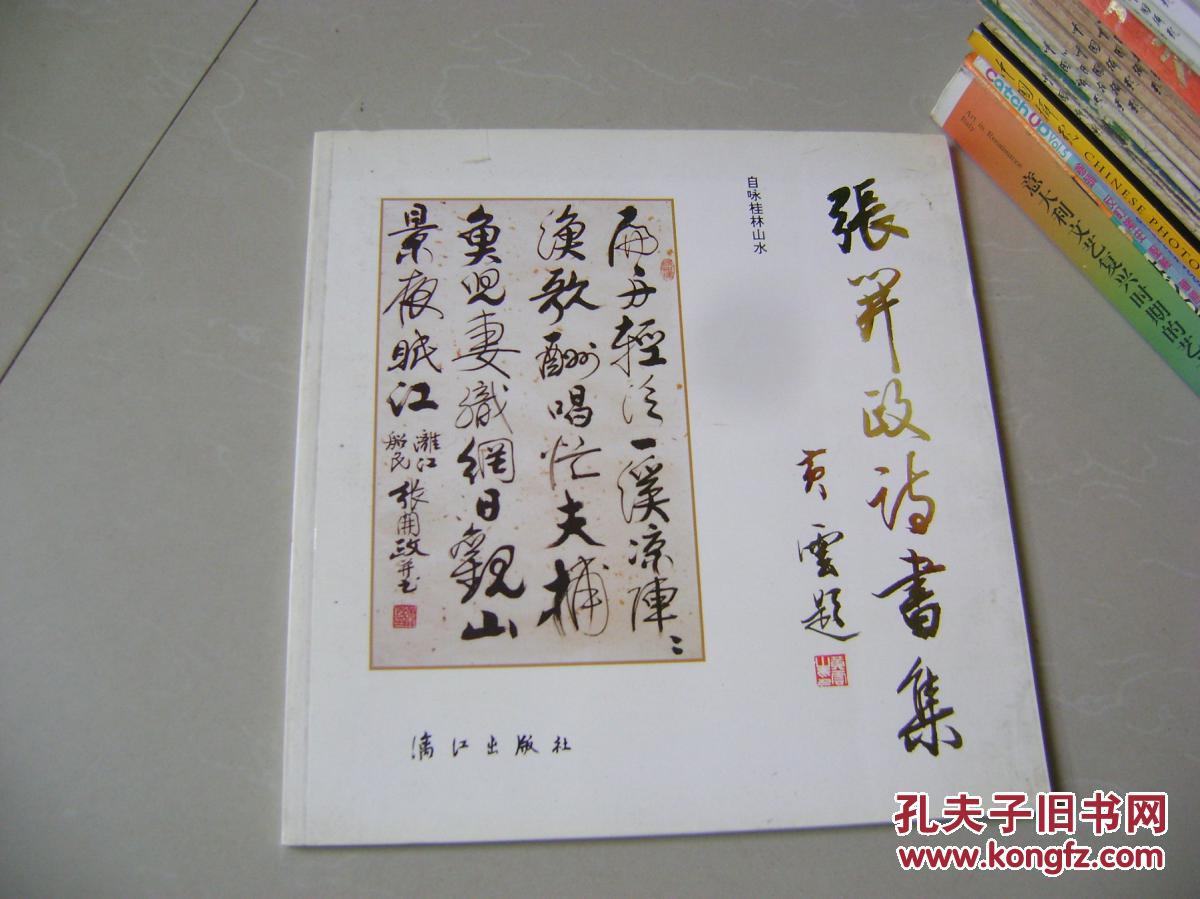 張開政詩書集
黄雲題
自咏桂林山水
扁舟輕泛一溪凉陣〻
漁歌酬唱忙夫捕
魚児妻織網日觀山
景夜眠江
灕江
船民
张開政并书
漓江出版社
意大利文艺复兴时期的艺
Art in Renaissance
Italy
Catch Up Vol.5
中国摄影 CHINESE PHOTO
孔夫子旧书网
www.kongfz.com